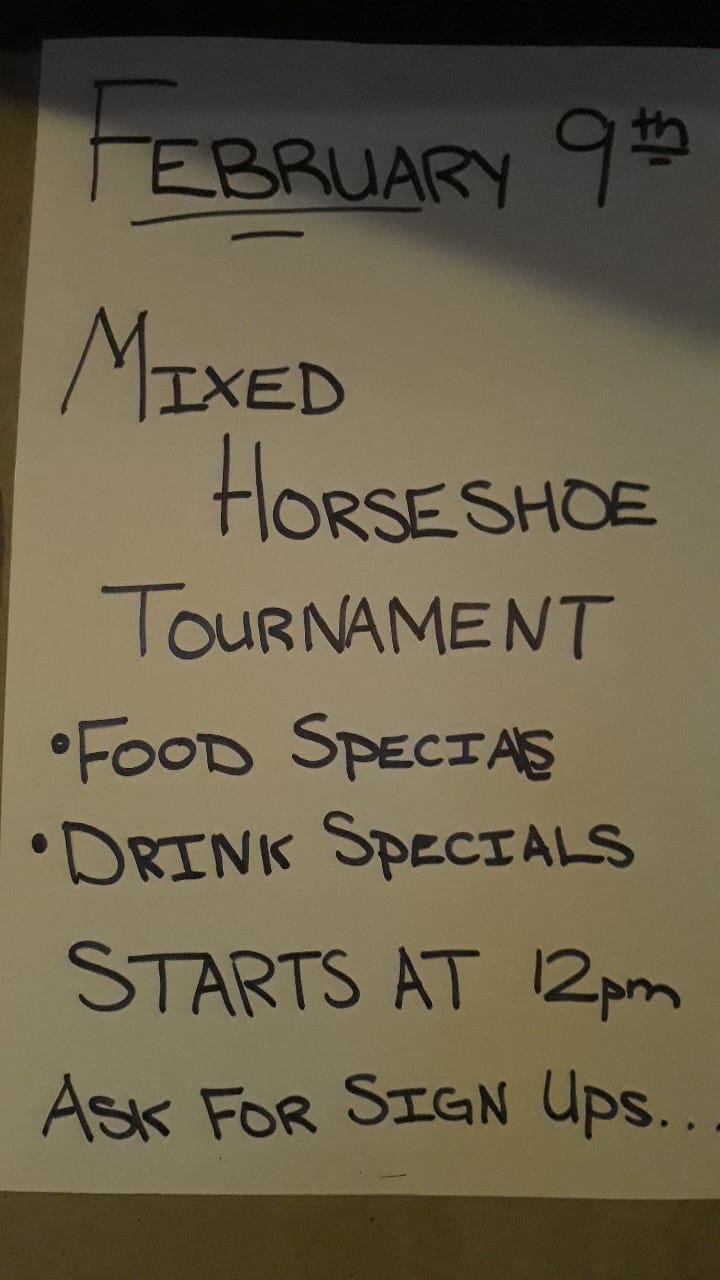 FEBRUARY 9th
MIXED
HORSESHOE
TOURNAMENT
• FOOD SPECIALS
• DRINK SPECIALS
STARTS AT 12pm
ASK FOR SIGN UPS...